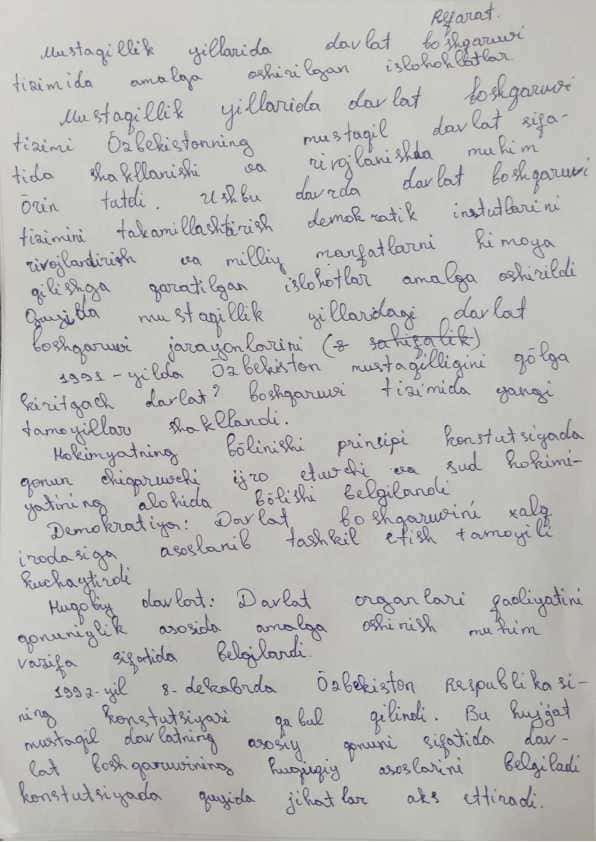 Referat.
Mustaqillik yillarida davlat boshqaruvi
tizimida amalga oshirilgan islohohlatlar
Mustaqillik yillarida davlat boshqaruvi
tizimi Özbekistonning mustaqil davlat sifa-
tida shakllanishi va rivojlanishda muhim
örin tatdi. Ushbu davrda davlat boshqaruvi
tizimini takamillashtirish demokratik institutlarini
rivojlantirish va milliy manfatlarni himoya
qilishga qaratilgan islohotlar amalga oshirildi
Quyida mustaqillik yillardagi davlat
boshqaruvi jarayonlarini (2 sahifalik)
1991-yilda Özbekiston mustaqilligini qölga
kiritgach davlat? boshqaruvi tizimida yangi
tamoyillar shakllandi.
Hokimyatning bölinishi prinsipi konstutsiyada
qonun chiqaruvchi ijro etuvchi va sud hokimi-
yatining alohida bölishi belgilandi
Demokratiya: Davlat boshqaruvini xalq
irodasiga asoslanib tashkil etish tamoyili
kuchaytirdi
Huqobiy davlort: Davlat organlari faoliyatini
qonuniylik asosida amalga oshirish muhim
vazifa sifatida belgilandi.
1992-yil 8-dekabrda Özbekiston Respublikasi-
ning konstutsiyasi qabul qilindi. Bu hujjat
mustaqil davlatning asosiy qonuni sifatida dav-
lat boshqaruvining huquqiy asoslarini belgiladi
konstutsiyada quyida jihatlar aks ettiradi.